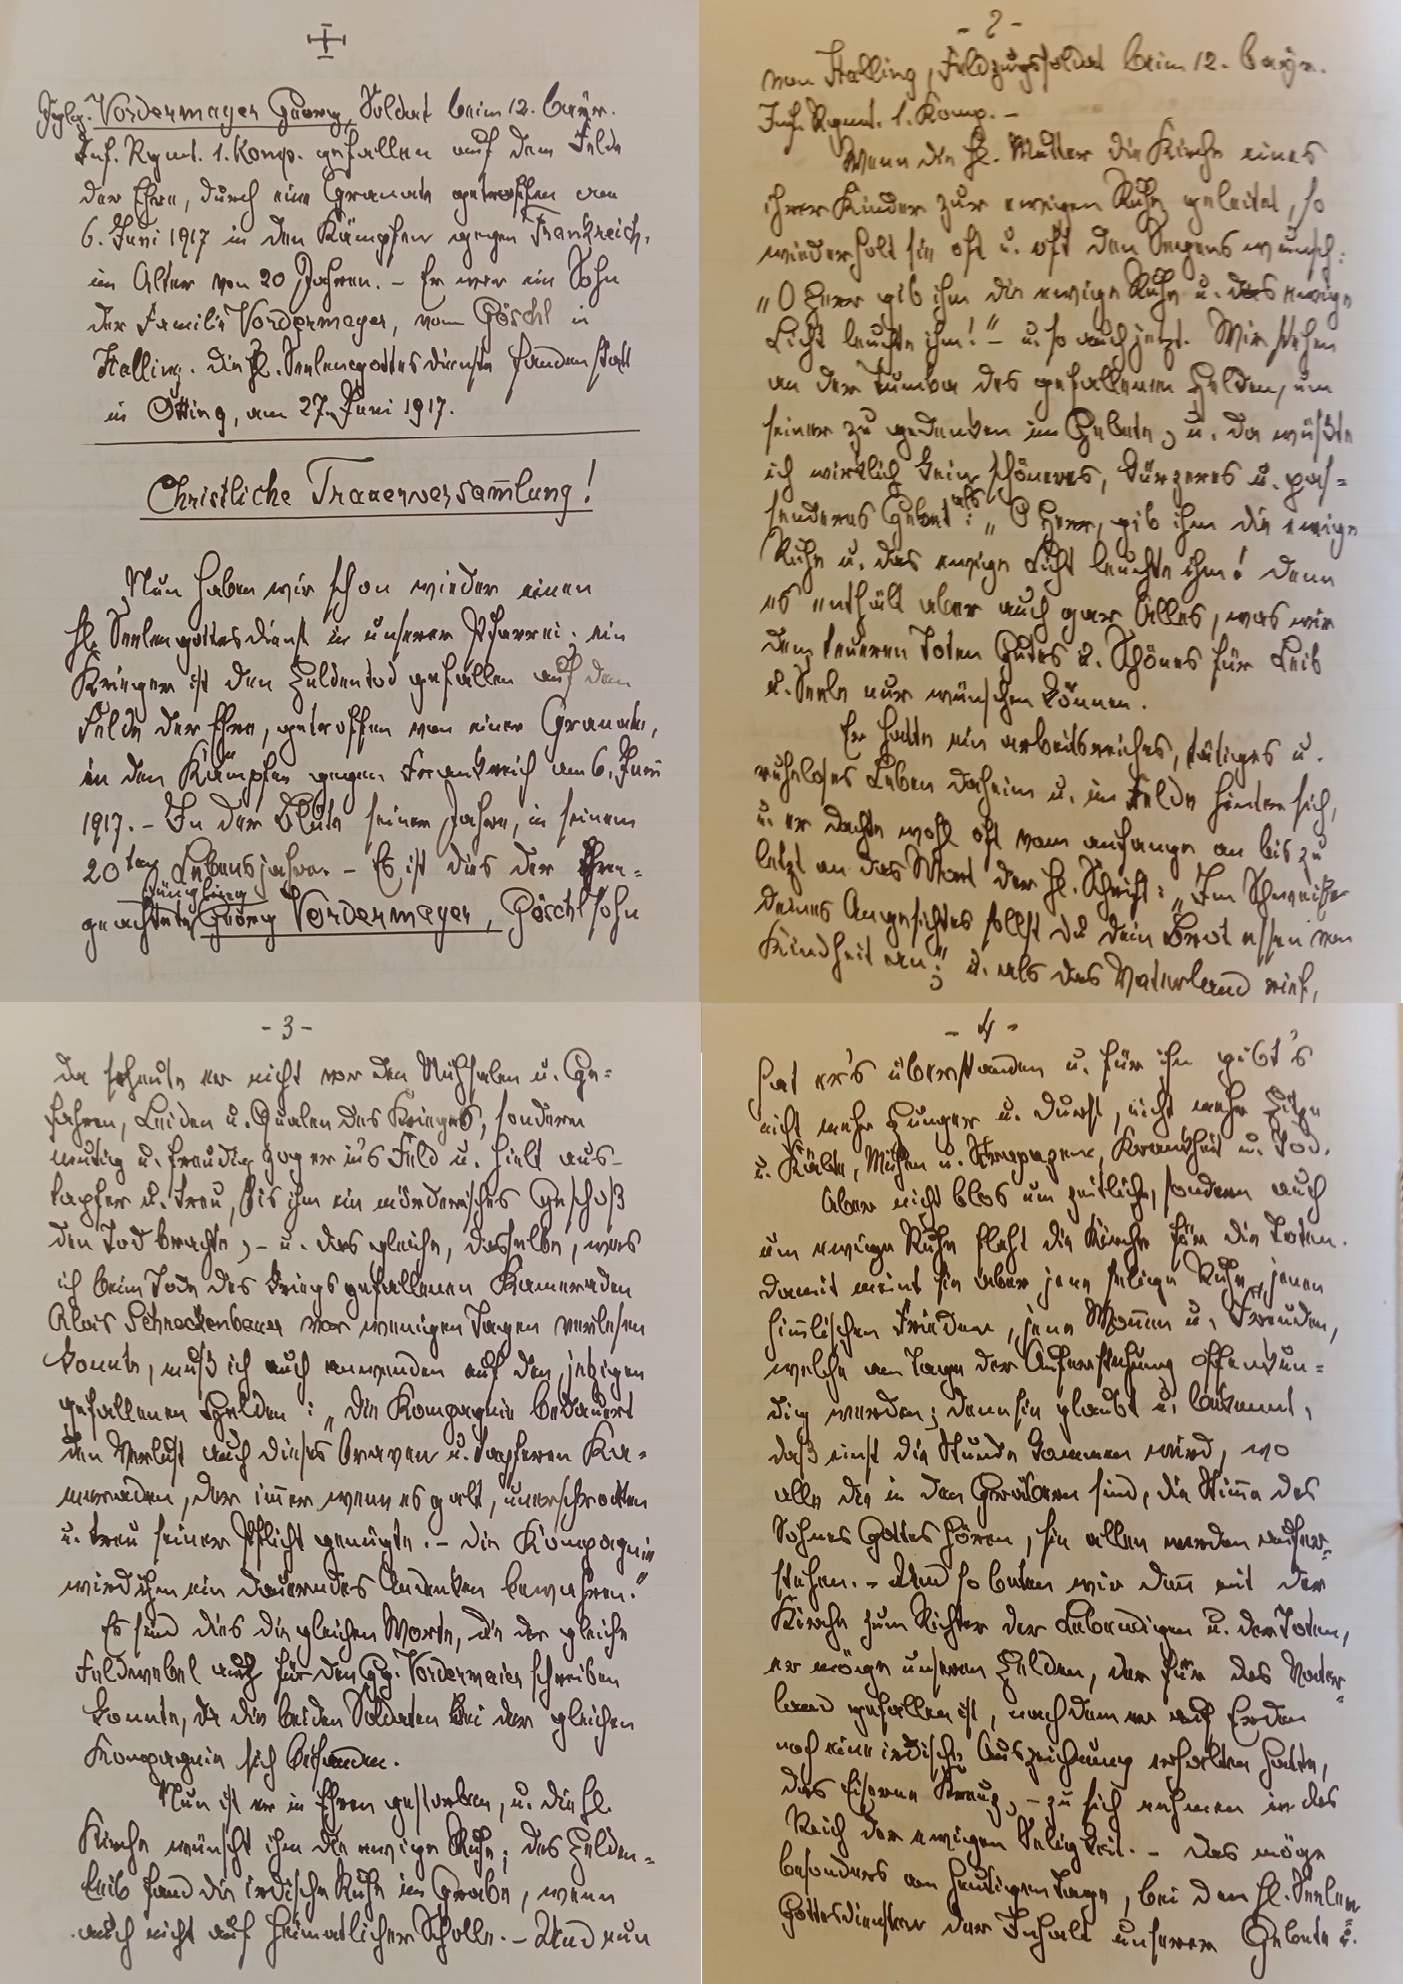 Jüglg. Vordermayer Georg, Soldat beim 12. bayr.
Inf. Rgmt. 1. Komp. gefallen auf dem Felde
der Ehre, durch eine Granate getroffen am
6. Juni 1917 in den Kämpfen gegen Frankreich,
im Alter von 20 Jahren. – Er war ein Sohn
der Familie Vordermayer, vom Göschl in
Halling. Die hl. Seelengottesdienste fanden statt
in Otting, am 27. Juni 1917.
Christliche Trauerversam̅lung!
Nun haben wir schon wieder einen
hl. Seelengottesdienst in unserer Pfarrei; ein
Krieger ist den Heldentod gefallen auf dem
Felde der Ehre, getroffen von einer Granate,
in den Kämpfen gegen Frankreich am 6. Juni
1917. – In der Blüte seiner Jahre, in seinem
20ten Lebensjahre. – Es ist dies der ehren=
Jüngling
geachtete Georg Vordermayer, Göschlsohn
- 2 -
von Halling, Feldzugssoldat beim 12. bayr.
Inf. Rgmt. 1. Komp. –
Wenn die hl. Mutter die Kirche eines
ihrer Kinder zur ewigen Ruhe geleitet, so
wiederholt sie oft u. oft den Segenswunsch:
„O Herr gib ihm die ewige Ruhe u. das ewige
Licht leuchte ihm!" – u. so auch jetzt. Wir stehen
an der Tumba des gefallenen Helden, um
seiner zu gedenken im Gebete, u. da wüßte
ich wirklich kein schöneres, kürzeres u. pas=
senderes Gebet als: „O Herr, gib ihm die ewige
Ruhe u. das ewige Licht leuchte ihm! Denn
es enthält aber auch gar Alles, was wir
dem teueren Toten Gutes u. Schönes für Leib
u. Seele nur wünschen können.
Er hatte ein arbeitsreiches, tätiges u.
ruheloses Leben daheim u. im Felde hinter sich,
u. er dachte wohl oft vom anfange an bis zu
letzt an das Wort der hl. Schrift: „Im Schweiße
deines Angesichtes sollst du dein Brot essen von
Kindheit an;" u. als das Vaterland rief,
- 3 -
da scheute er nicht vor den Mühsalen u. Ge=
fahren, Leiden u. Qualen des Krieges, sondern
mutig u. freudig zog er in's Feld u. hielt aus
tapfer u. treu, bis ihm ein mörderisches Geschoß
den Tod brachte, – u. das gleiche, dasselbe, was
ich beim Tode des kriegsgefallenen Kameraden
Alois Schneckenbauer vor wenigen Tagen verlesen
konnte, muß ich auch anwenden auf den jetzigen
gefallenen Helden: „Die Kompagnie bedauert
den Verlust auch dieses braven u. tapferen Ka=
meraden, der im̅er wenn es galt, unerschrocken
u. treu seiner Pflicht genügte. – Die Kompagnie
wird ihm ein dauerndes Andenken bewahren."
Es sind dies die gleichen Worte, die der gleiche
Feldwebel auch für den Gg. Vordermaier schreiben
konnte, da die beiden Soldaten bei der gleichen
Kompagnie sich befanden.
Nun ist er in Ehren gestorben, u. die hl.
Kirche wünscht ihm die ewige Ruhe; des Helden=
leib fand die irdische Ruhe im Grabe, wenn
auch nicht auf heimatlicher Scholle. – Und nun
- 4 -
hat er's überstanden u. für ihn gibt's
nicht mehr Hunger u. Durst, nicht mehr Hitze
u. Kälte, Mühen u. Strapazen, Krankheit u. Tod.
Aber nicht blos um zeitliche, sondern auch
um ewige Ruhe fleht die Kirche für die Toten.
Damit meint sie aber jene selige Ruhe, jenen
him̅lischen Frieden, jene Wonnen u. Freuden,
welche am Tage der Auferstehung offenkun=
dig werden; denn sie glaubt u. bekennt,
daß einst die Stunde kommen wird, wo
alle die in den Gräbern sind, die Stim̅e des
Sohnes Gottes hören, sie allen werden aufer=
stehen. – Und so beten wir dan̅ mit der
Kirche zum Richter der Lebendigen u. der Toten,
er möge unseren Helden, der für das Vater=
land gefallen ist, nachdem er auf Erden
noch eine irdische Auszeichnung erhalten hatte,
das Eiserne Kreuz, – zu sich nehmen in das
Reich der ewigen Seligkeit. – Das möge
besonders am heutigen Tage, bei den hl. Seelen
Gottesdiensten der Inhalt unserer Gebete u.